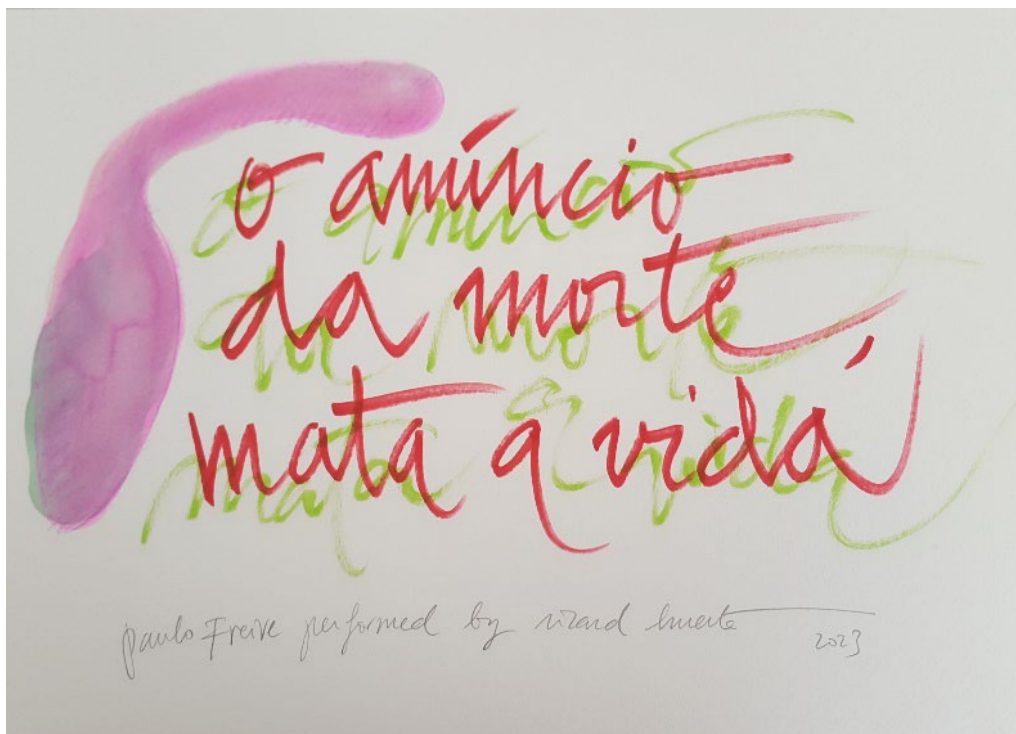 o anúncio
da morte
mata a vida
paulo Freire performed by ricard huerta
2023